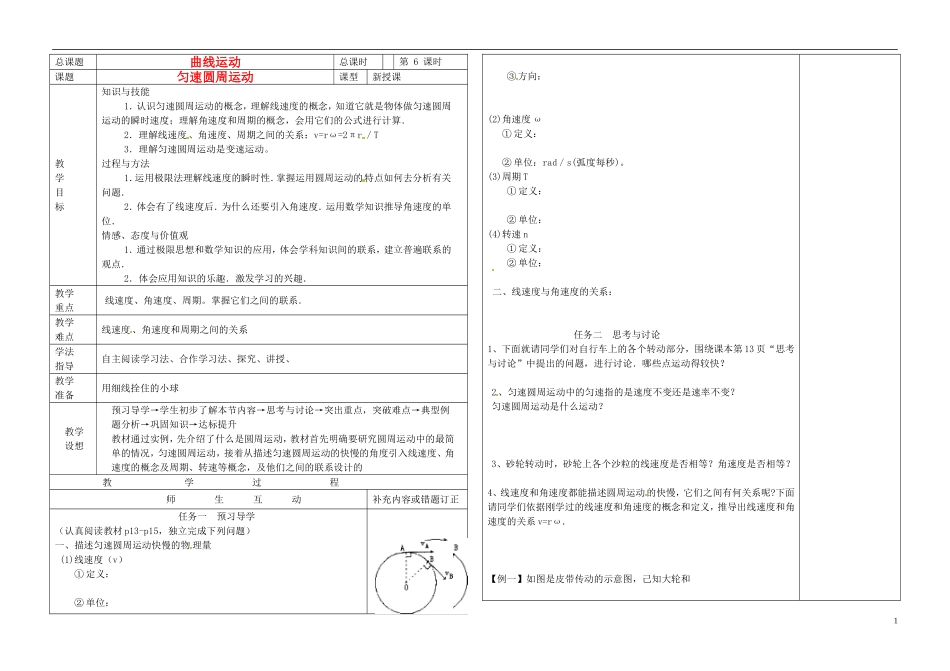 总课题 曲线运动 总课时 第 6 课时
课题 匀速圆周运动 课型 新授课
教
学
目
标
知识与技能
1．认识匀速圆周运动的概念，理解线速度的概念，知道它就是物体做匀速圆周
运动的瞬时速度；理解角速度和周期的概念，会用它们的公式进行计算．
2．理解线速度、角速度、周期之间的关系：v=rω=2πr／T
3．理解匀速圆周运动是变速运动。
过程与方法
1．运用极限法理解线速度的瞬时性．掌握运用圆周运动的特点如何去分析有关
问题．
2．体会有了线速度后．为什么还要引入角速度．运用数学知识推导角速度的单
位．
情感、态度与价值观
1．通过极限思想和数学知识的应用，体会学科知识间的联系，建立普遍联系的
观点．
2．体会应用知识的乐趣．激发学习的兴趣．
教学
重点
线速度、角速度、周期。掌握它们之间的联系．
教学
难点
线速度、角速度和周期之间的关系
学法
指导
自主阅读学习法、合作学习法、探究、讲授、
教学
准备
用细线拴住的小球
教学
设想
预习导学→学生初步了解本节内容→思考与讨论→突出重点，突破难点→典型例
题分析→巩固知识→达标提升
教材通过实例，先介绍了什么是圆周运动，教材首先明确要研究圆周运动中的最简
单的情况，匀速圆周运动，接着从描述匀速圆周运动的快慢的角度引入线速度、角
速度的概念及周期、转速等概念，及他们之间的联系设计的
教 学 过 程
师 生 互 动 补充内容或错题订正
任务一 预习导学
（认真阅读教材 p13-p15，独立完成下列问题）
一、描述匀速圆周运动快慢的物理量
(1)线速度（v）
①定义：
②单位：
A vA B
B
vB
O
③方向：
(2)角速度 ω
①定义：
②单位：rad／s(弧度每秒)。
(3)周期 T
①定义：
②单位：
(4)转速 n
①定义：
②单位：
二、线速度与角速度的关系：
任务二 思考与讨论
1、下面就请同学们对自行车上的各个转动部分，围绕课本第 13 页“思考
与讨论”中提出的问题，进行讨论．哪些点运动得较快？
2、匀速圆周运动中的匀速指的是速度不变还是速率不变？
匀速圆周运动是什么运动？
3、砂轮转动时，砂轮上各个沙粒的线速度是否相等？角速度是否相等？
4、线速度和角速度都能描述圆周运动的快慢，它们之间有何关系呢?下面
请同学们依据刚学过的线速度和角速度的概念和定义，推导出线速度和角
速度的关系 v=rω．
【例一】如图是皮带传动的示意图，己知大轮和
1